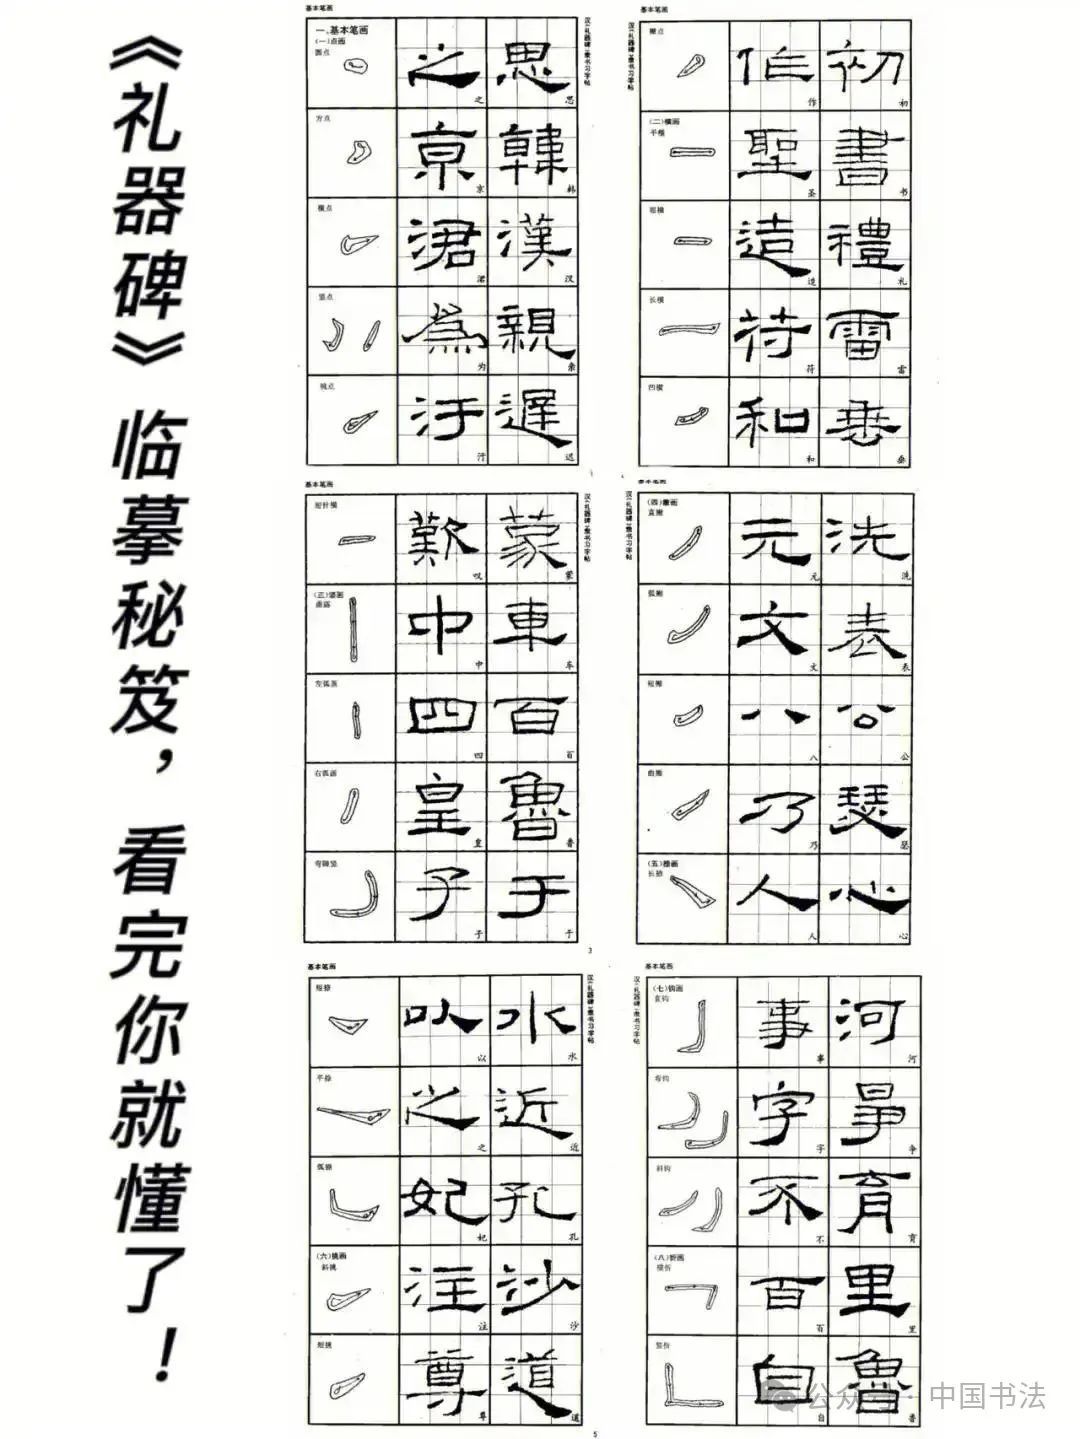 《礼器碑》临摹秘笈，看完你就懂了！
基本笔画
一、基本笔画
(一)点画
圆点
之 之
思 思
方点
京 京
韓 韩
横点
涒 涒
漢 汉
竖点
為 为
親 亲
挑点
汙 汙
遲 迟
汉《礼器碑》隶书习字帖
基本笔画
撇点
作 作
初 初
(二)横画
平横
聖 圣
書 书
短横
造 造
禮 礼
长横
符 符
雷 雷
凹横
和 和
垂 垂
汉《礼器碑》隶书习字帖
基本笔画
短针横
歎 叹
蒙 蒙
(三)竖画
中 中
車 车
左弧画
四 四
百 百
右弧画
皇 皇
魯 鲁
弯脚竖
子 子
于 于
汉《礼器碑》隶书习字帖
3
基本笔画
(四)撇画
直撇
元 元
洗 洗
弧撇
文 文
表 表
短撇
八 八
公 公
曲撇
乃 乃
瑟 瑟
(五)捺画
长捺
人 人
心 心
汉《礼器碑》隶书习字帖
基本笔画
短捺
以 以
水 水
平捺
之 之
近 近
弧捺
妃 妃
孔 孔
(六)挑画
斜挑
注 注
沙 沙
短挑
尊 尊
道 道
汉《礼器碑》隶书习字帖
5
基本笔画
(七)钩画
直钩
事 事
河 河
弯钩
字 字
爭 争
斜钩
不 不
育 育
(八)折画
横折
百 百
里 里
竖折
自 自
魯 鲁
汉《礼器碑》隶书习字帖
公众号·中国书法